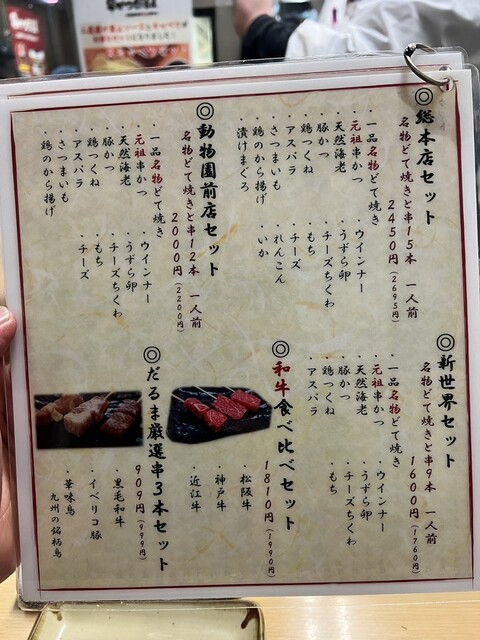 ◎総本店セット
名物どて焼きと串15本 一人前
2450円(2695円)
・一品名物どて焼き
・元祖串かつ
・天然海老
・豚かつ
・鶏つくね
・アスパラ
・さつまいも
・鶏のから揚げ
・漬けまぐろ
・ウインナー
・うずら卵
・チーズちくわ
・もち
・チーズ
・れんこん
・いか
◎動物園前店セット
名物どて焼きと串12本 一人前
2000円(2200円)
・一品名物どて焼き
・元祖串かつ
・天然海老
・豚かつ
・鶏つくね
・アスパラ
・さつまいも
・鶏のから揚げ
・ウインナー
・うずら卵
・チーズちくわ
・もち
・チーズ
◎新世界セット
名物どて焼きと串9本 一人前
1600円(1760円)
・一品名物どて焼き
・元祖串かつ
・天然海老
・豚かつ
・鶏つくね
・アスパラ
・ウインナー
・うずら卵
・チーズちくわ
・もち
◎和牛食べ比べセット
1810円(1990円)
・松阪牛
・神戸牛
・近江牛
◎だるま厳選串3本セット
909円(999円)
・黒毛和牛
・イベリコ豚
・華味鳥
九州の銘柄鳥